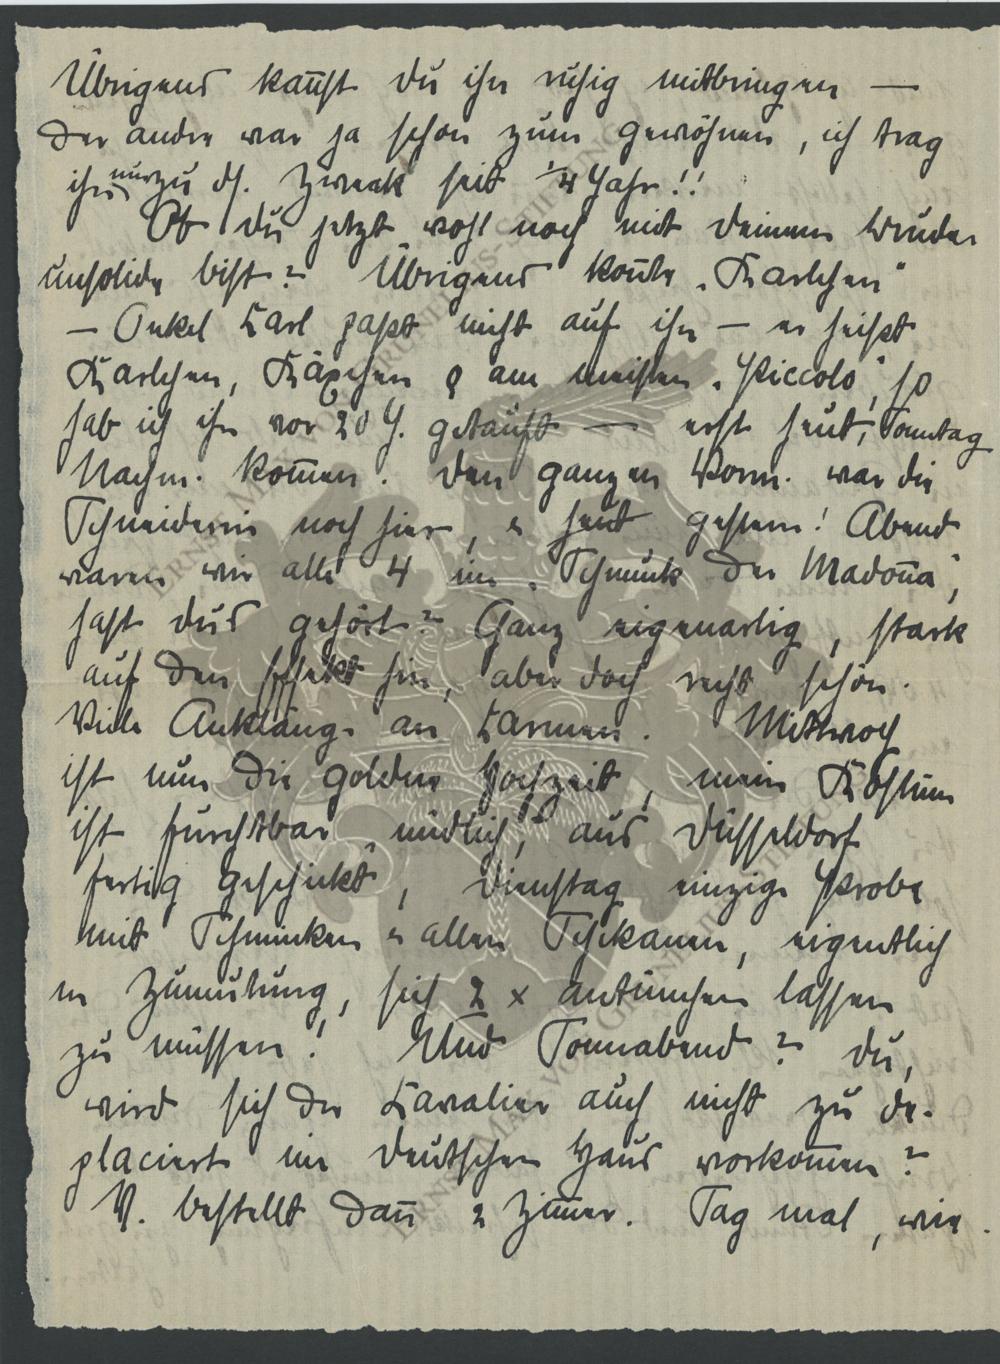 Übrigens kan̄st du ihn ruhig mitbringen —
Der andre war ja schon zum gewöhnen, ich trag
ihn nur zu ds. Zweck seit 1/4 Jahr!!
Ob du jetzt wohl noch mit deinem Bruder
unsolide bist? Übrigens kon̄te „Karlchen"
— Onkel Carl paßt nicht auf ihn — er heißt
Karlchen, Käpchen & am meisten „Piccolo", so
hab ich ihn vor 20 J. getauft — erst heut, Sonntag
Nachm. kom̄en. Den ganzen Vorm. war die
Schneiderin noch hier, u. heut gestern! Abend
waren wir alle 4 im „Schmuck der Madon̄a",
hast dus gehört? Ganz eigenartig, stark
auf den Effekt hin, aber doch recht schön.
Viele Anklänge an Carmen. Mittwoch
ist nun die goldne Hochzeit, mein Kostüm
ist furchtbar „niedlich", aus Düsseldorf
fertig geschickt, Dienstag einzige Probe
mit Schminken u allen Schikanen, eigentlich
ne Zumutung, sich 2 x antünchen lassen
zu müssen! Und Sonnabend? Du,
wird sich der Cavalier auch nicht zu de-
placiert im Deutschen Haus vorkom̄en?
V. bestellt dan̄ 2 Zim̄er. Sag mal, wie
DIRNSTIFTUNG